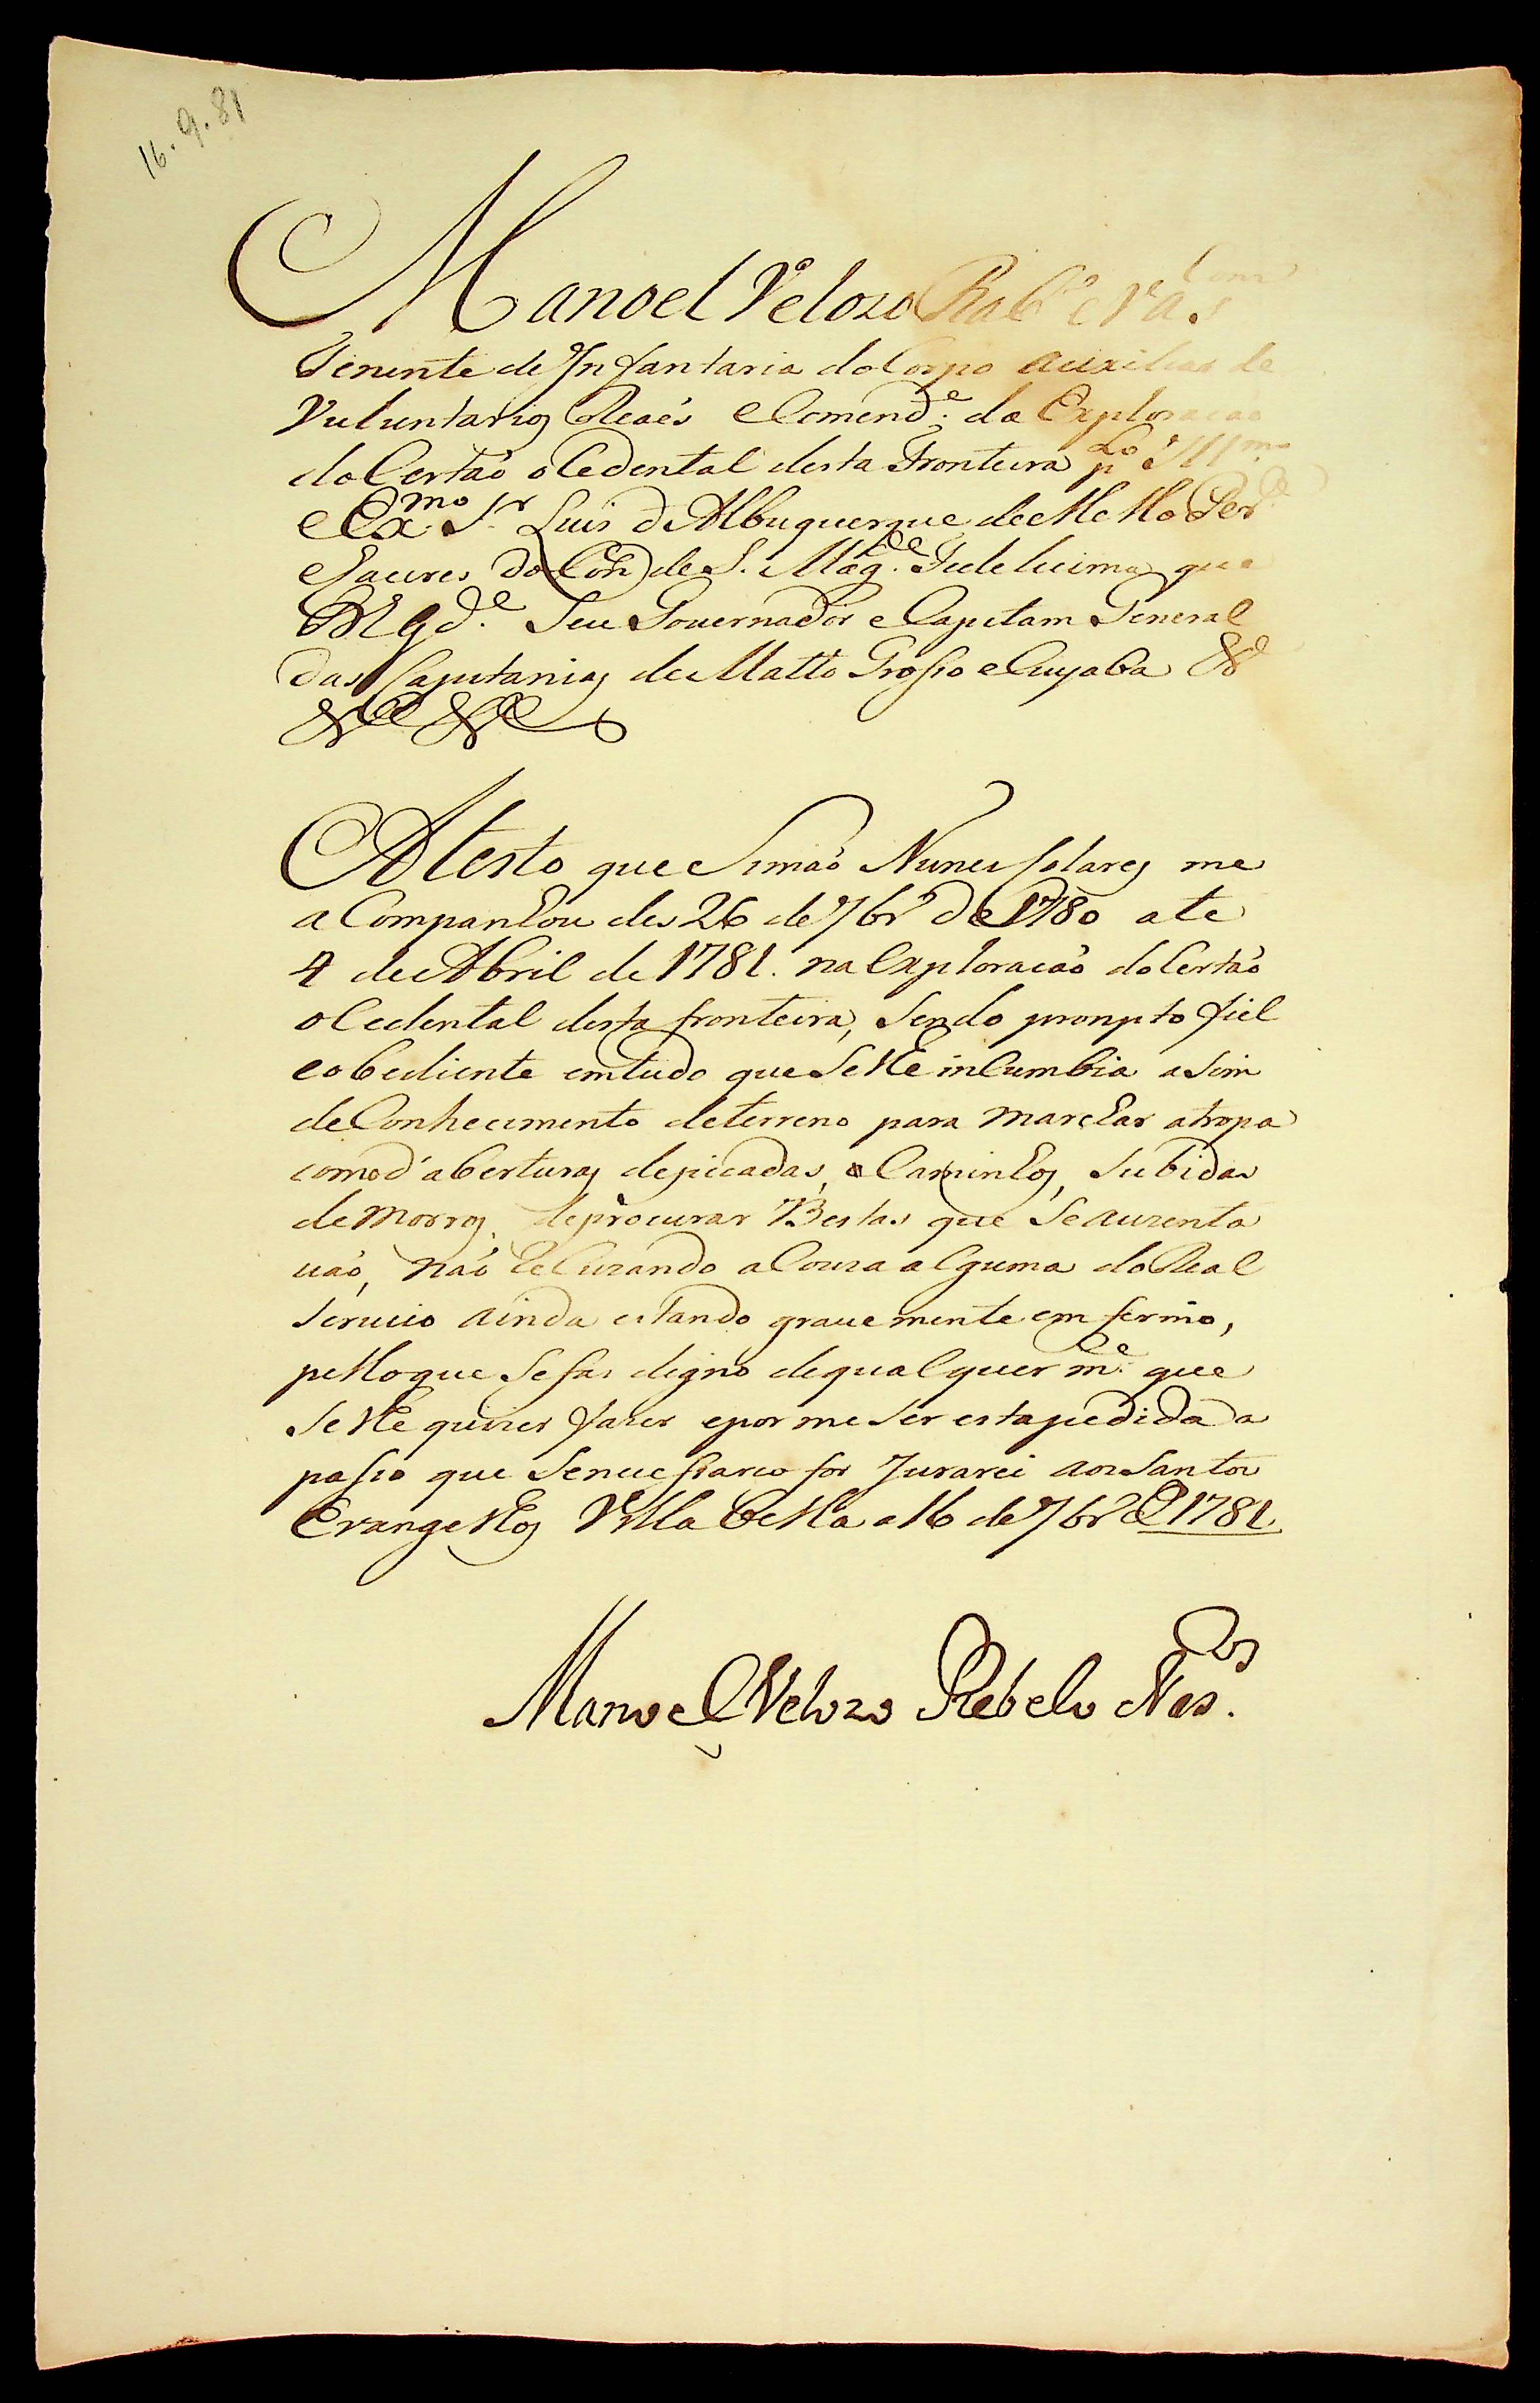 16. 9. 81
Manoel Velozo Rab.º e Va.s
Tenente de Infantaria do Corpo auxiliar de
Vuluntarios Reaes e Comend.e da Exploracaõ
do Certaõ oCedental desta Fronteira p.lo Ill.mo
e Ex.mo S.r Luis d'Albuquerque de Mello Per.ª
e Caceres do Con. de S. Mag.de Fidelicima que
D.s g.de Seu Governador e Capitam General
das Capitanias de Matto Grosso e Cuyaba &.ª
&.ª &.ª
Atesto que Simaõ Nunes Solares me
aCompanhou des 26 de 7br.º de 1780 ate
4 de Abril de 1781. na Exploracaõ do Certaõ
oCedental desta fronteira, Sendo prompto fiel
e obediente em tudo que Se lhe inCumbia asim
de Conhecimento de terreno para marchar a tropa
como d'aberturas de picadas, e Caminhos, Subidas
de Morros, de procurar Bestas que Se auzenta
vaõ, naõ ReCuzando a Couza alguma do Real
Servicio ainda estando gravemente emfermo,
pello que Se fas digno de qualquer m.e que
Se lhe quizer fazer e por me Ser esta pedida a
passo que Se necessario for Jurarei aos Santos
Evangelhos Villa Bella a 16 de 7br.º D 1781.
Manoel Velozo Rebelo Vas.los